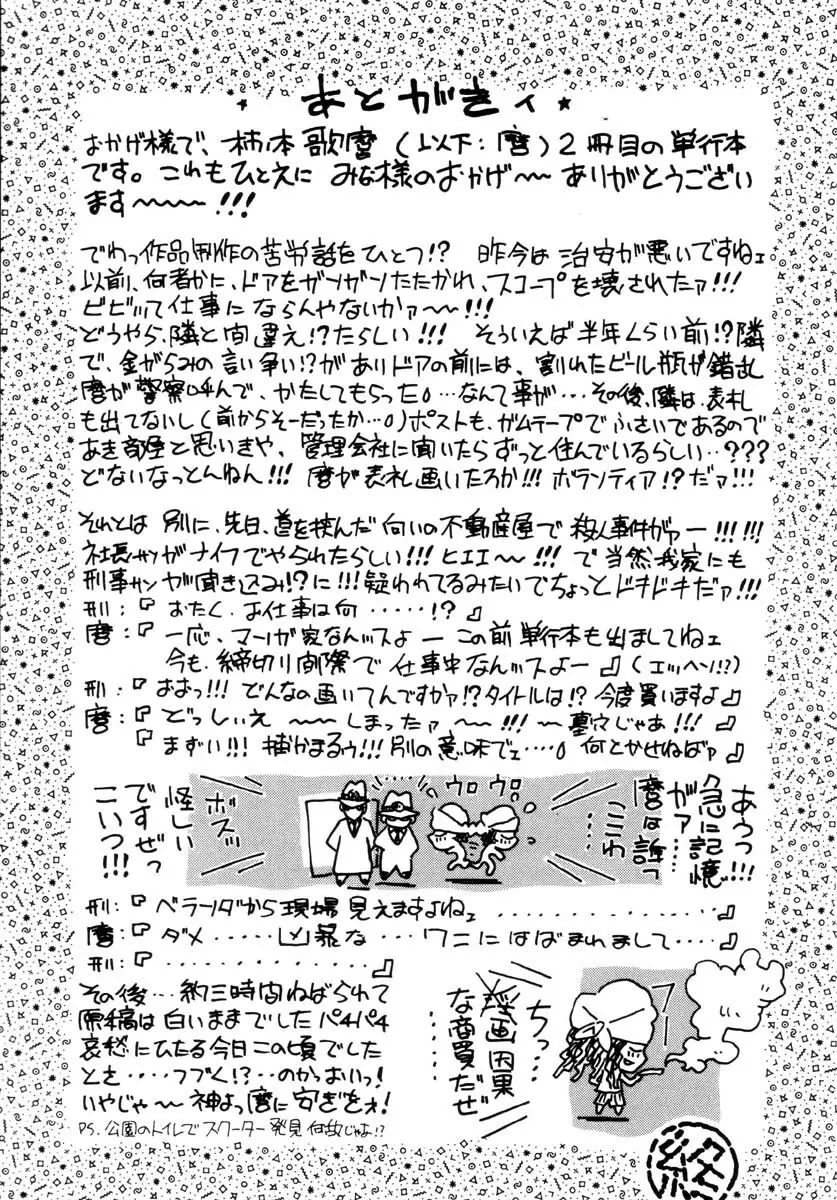 あとがきィ
おかげ様で、柿ノ本歌麿(以下:麿)2冊目の単行本
です。これもひとえに みな様のおかげ〜〜 ありがとうござい
ます〜〜〜!!!
でわっ作品制作の苦労話をひとつ!? 昨今は治安が悪いですねェ
以前、何者かに、ドアをガンガンたたかれ、スコープを壊されたァ!!!
ビビッて仕事にならんやないかァ〜〜!!!
どうやら、隣と間違え!?たらしい!!! そういえば半年くらい前!?隣
で、金がらみの言い争い!?がありドアの前には、割れたビール瓶が錯乱
麿が警察呼んで、かたしてもらった。…なんて事が…その後、隣は、表札
も出てないし(前からそーだったか…。)ポストも、ガムテープでふさいであるので
あき部屋と思いきや、管理会社に聞いたらずっと住んでいるらしい…???
どないなっとんねん!!! 麿が表札画いたろか!!! ボランティア!?だァ!!!
それとは 別に、先日、道を挟んだ向いの不動産屋で 殺人事件がァー!!!!!!
社長サンがナイフでやられたらしい!!! ヒエエ〜〜!!! で当然我家にも
刑事サンが聞き込み!?に!!!疑われてるみたいでちょっとドキドキだァ!!!
刑:『 おたく、お仕事は何……!? 』
麿:『 一応、マンガ家なんスよー この前単行本も出ましてねェ
今も、締切り間際で仕事中なんッスよー 』(エッヘン!?)
刑:『おおっ!!! どんなの画いてんですかァ!?タイトルは!? 今度買いますよ』
麿:『 どっしぇえ 〜〜〜しまったァ〜〜!!! 〜墓穴じゃあ!!!
『まずい!!! 捕かまるゥ!!!別の意味でェ…。何とかせねばァ』
あうっ!!!
急に記憶
がァ…
麿は誰っ
ここわ
ウロウロ
ボスッ
怪しい
ですぜっ
こいつ!!!
刑:『 ベランダから現場見えますよねェ ………… 』
麿:『 ダメ……凶暴な…ワニにはばまれまして…。』
刑:『 ………… 』
その後…約三時間ねばられて
原稿は白いままでしたパチパチ
哀愁にひたる今日この頃でした
とさ…つづく!?…のかっおいっ!
いやじゃ〜神よっ麿に安ぎをェ!
PS. 公園のトイレでスクーター発見何故じゃよ!?
フー
ちっ……
画因果
な商買だぜ
……
終